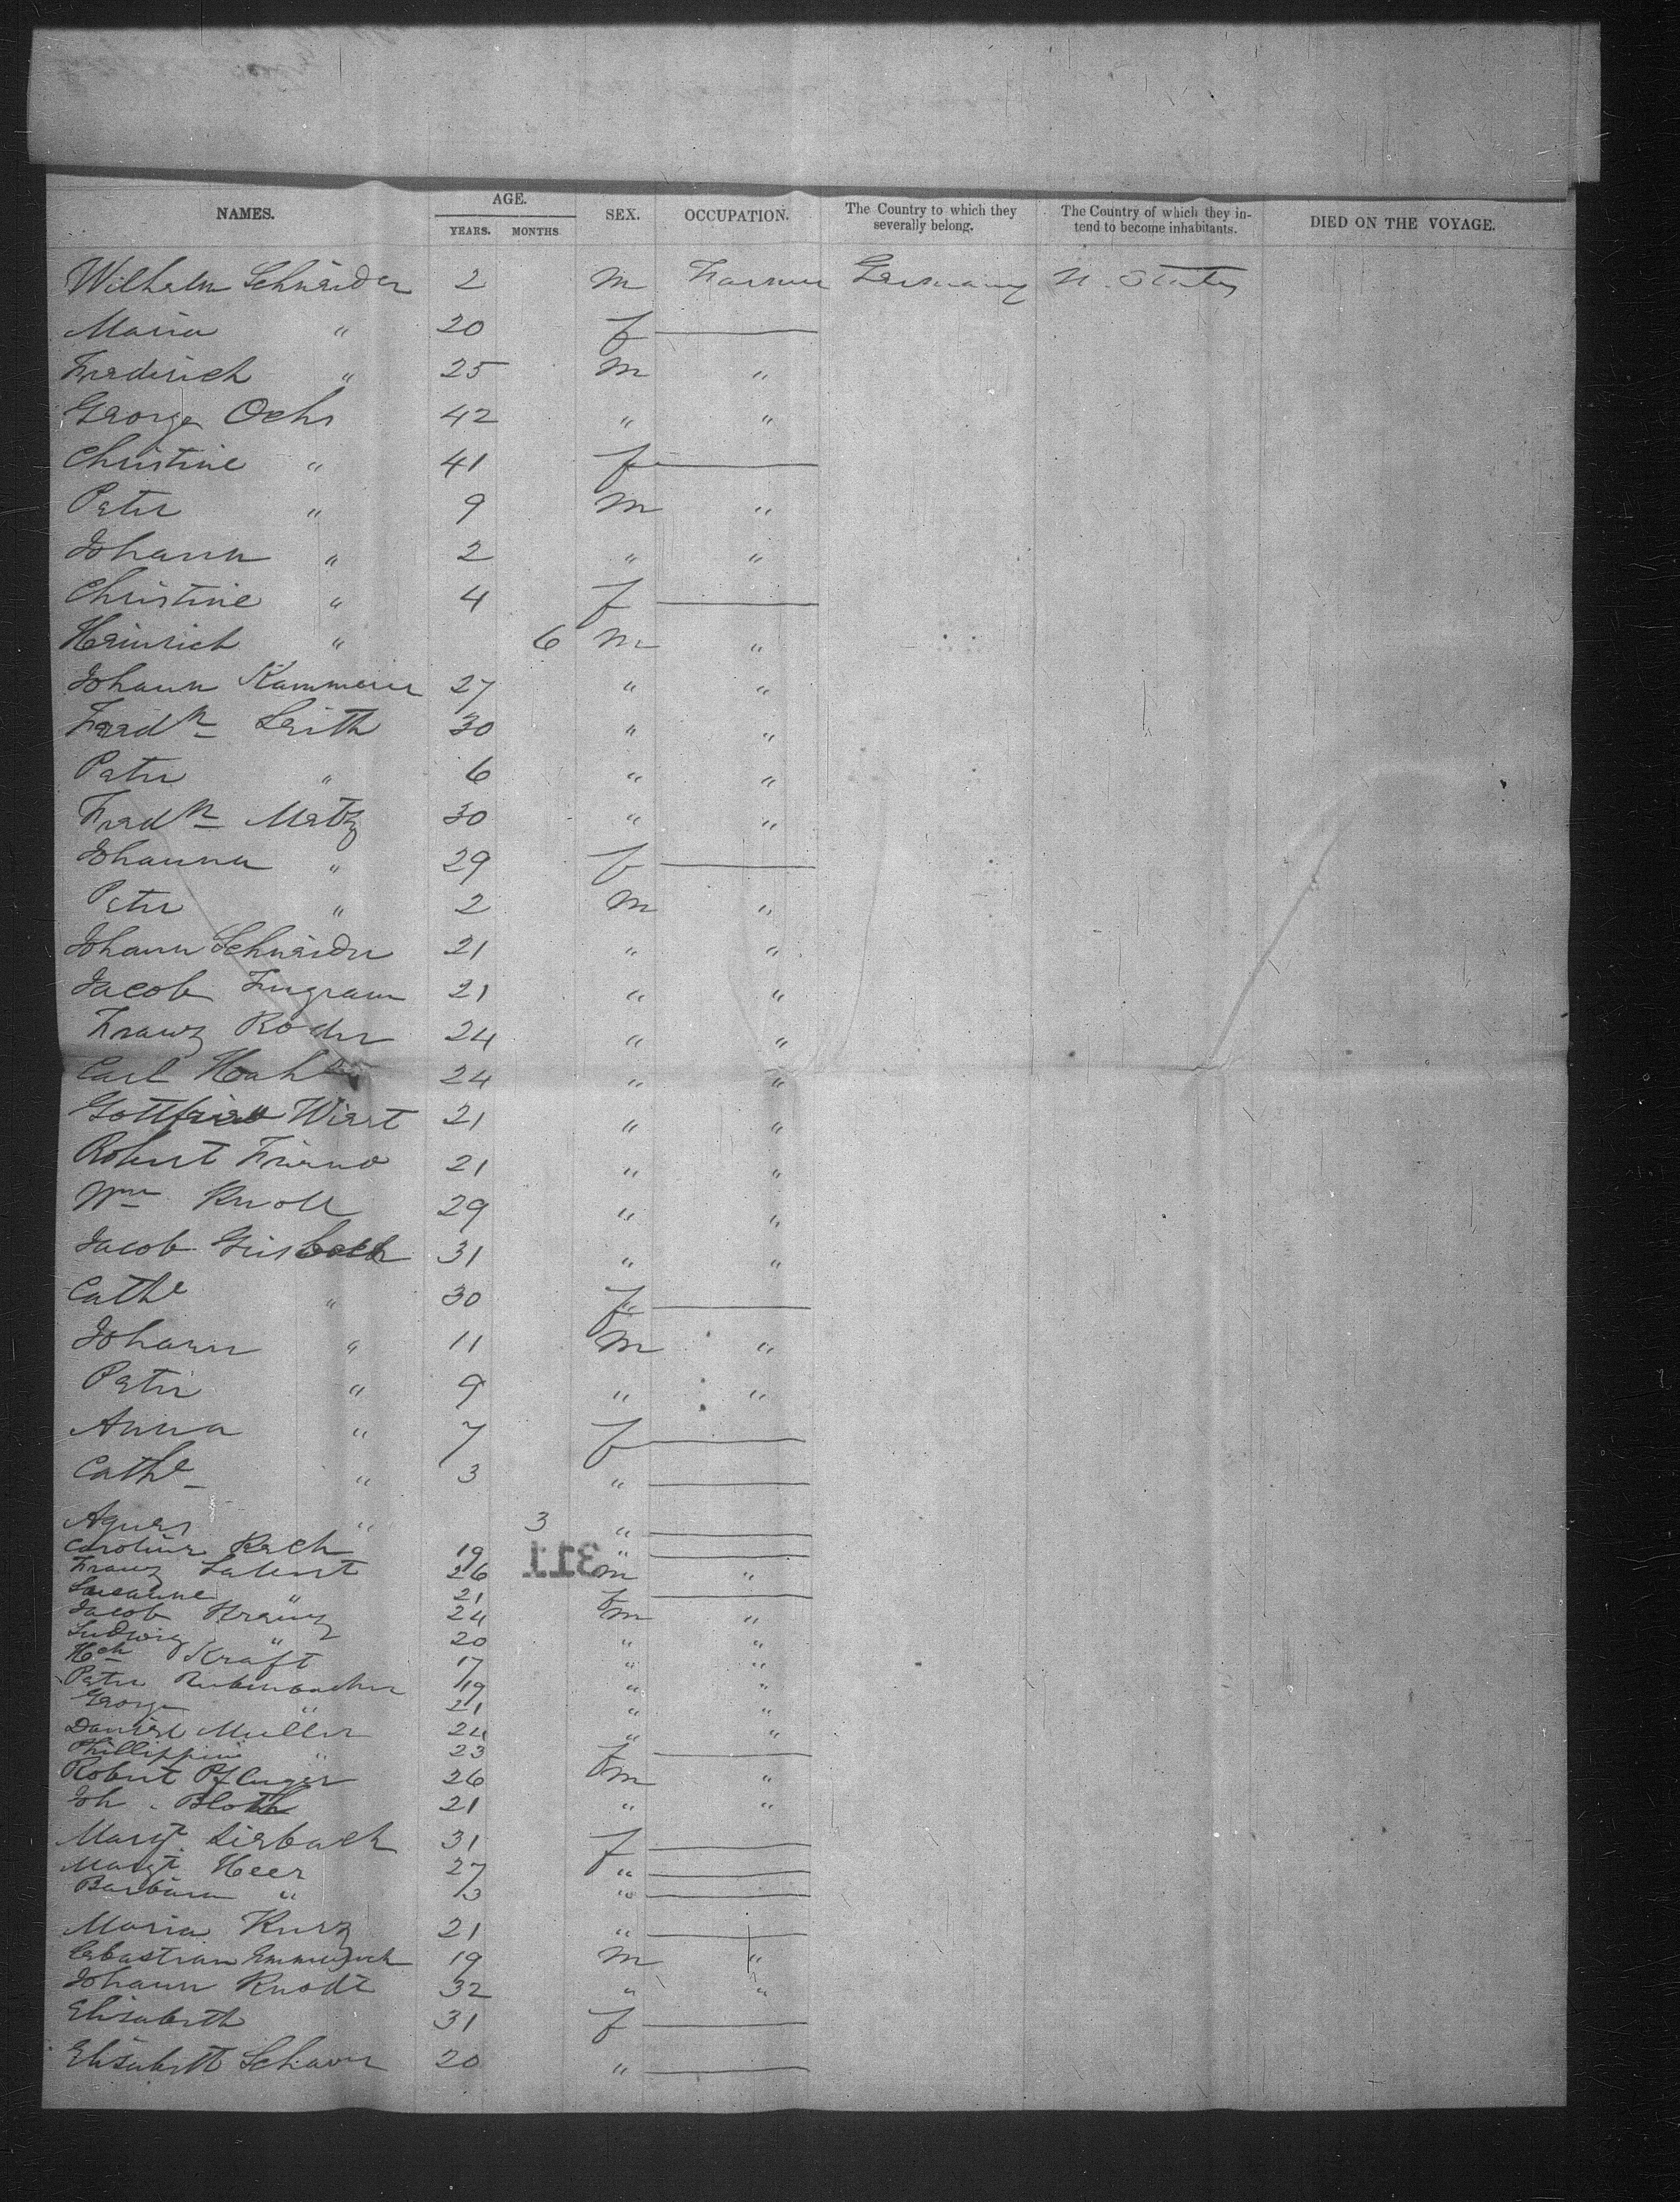 NAMES. AGE. YEARS. MONTHS SEX. OCCUPATION. The Country to which they severally belong. The Country of which they intend to become inhabitants. DIED ON THE VOYAGE.
Wilhelm Schneider 2 m Farmer Germany U. States
Maria " 20 f
Frederich " 25 m "
George Ochs 42 " "
Christine " 41 f
Peter " 9 m "
Johann " 2 " "
Christine " 4 f
Heinrich " 6 m "
Johann Kammerer 27 " "
Fredk Leith 30 " "
Peter " 6 " "
Fredk Metz 30 " "
Johanna " 29 f
Peter " 2 m "
Johann Schneider 21 " "
Jacob Ingram 21 " "
Franz Roder 24 " "
Carl 24 " "
Gottfried Wiest 21 " "
Robert Friend 21 " "
Wm Knoll 29 " "
Jacob 31 " "
Cathe " 30 f
Johann " 11 m "
Peter " 9 " "
Anna " 7 f
Cathe " 3 "
Agnes " 3 "
Caroline Rech 19 "
311
Franz 26 m "
Susanne " 21 f
Jacob Kranz 24 m "
Ludwig " 20 " "
Hch Kraft 17 " "
Peter 19 " "
George " 21 " "
Daniel Muller 24 " "
Phillippine " 23 f
Robert Pfluger 26 m "
Joh. 21 " "
Margt 31 f
Margt Heer 27 "
Barbara " "
Maria Kurz 21 "
Sebastian 19 m "
Johann Knodt 32 " "
Elisabeth 31 f
Elisabeth 20 "